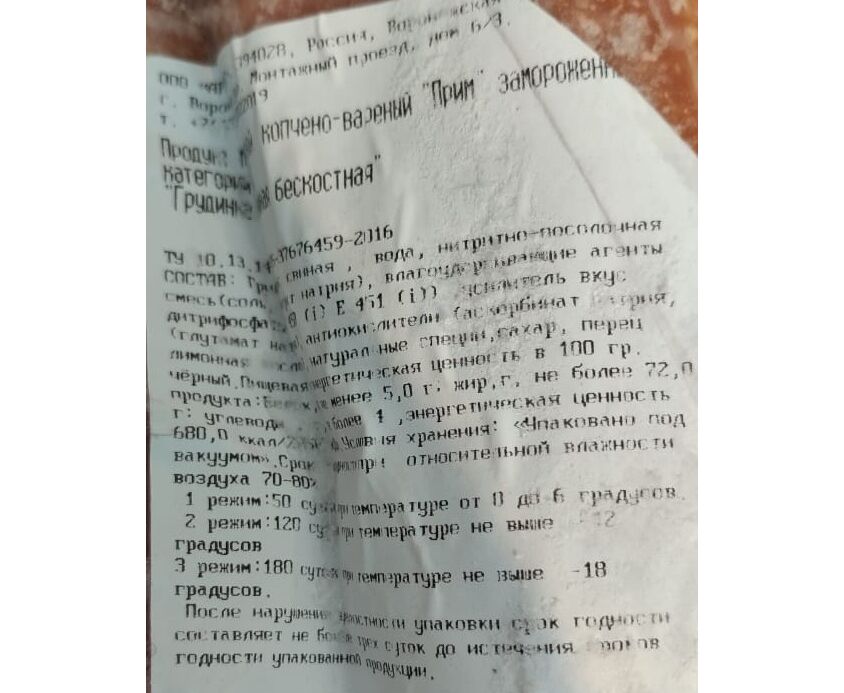 394028, Россия, Воронежская
ООО Монтажный проезд, дом 6/3.
г.
т.
Продукт копчено-вареный "Прим" заморожен
категории
"Грудинка бескостная"
ТУ 10.13.14 -37676459-2016
СОСТАВ: свиная , вода, нитритно-посолочная
смесь(соль, натрия), влагоудерживающие агенты
(i) Е 451 (i)) усилитель вкус
(глутамат антиокислители (аскорбинат натрия,
лимонная натуральные специи,сахар, перец
чёрный.Пищевая энергетическая ценность в 100 гр.
продукта: менее 5,0 г. жир,г, не более 72,0
г: углеводы более 1 ,энергетическая ценность
680,0 ккал/ Условия хранения: «Упаковано под
вакуумом».Срок при относительной влажности
воздуха 70-80%
1 режим:50 суток при температуре от 0 до 6 градусов.
2 режим:120 суток при температуре не выше -12
градусов
3 режим:180 суток при температуре не выше -18
градусов.
После нарушения целостности упаковки срок годности
составляет не более трех суток до истечения сроков
годности упакованной продукции.